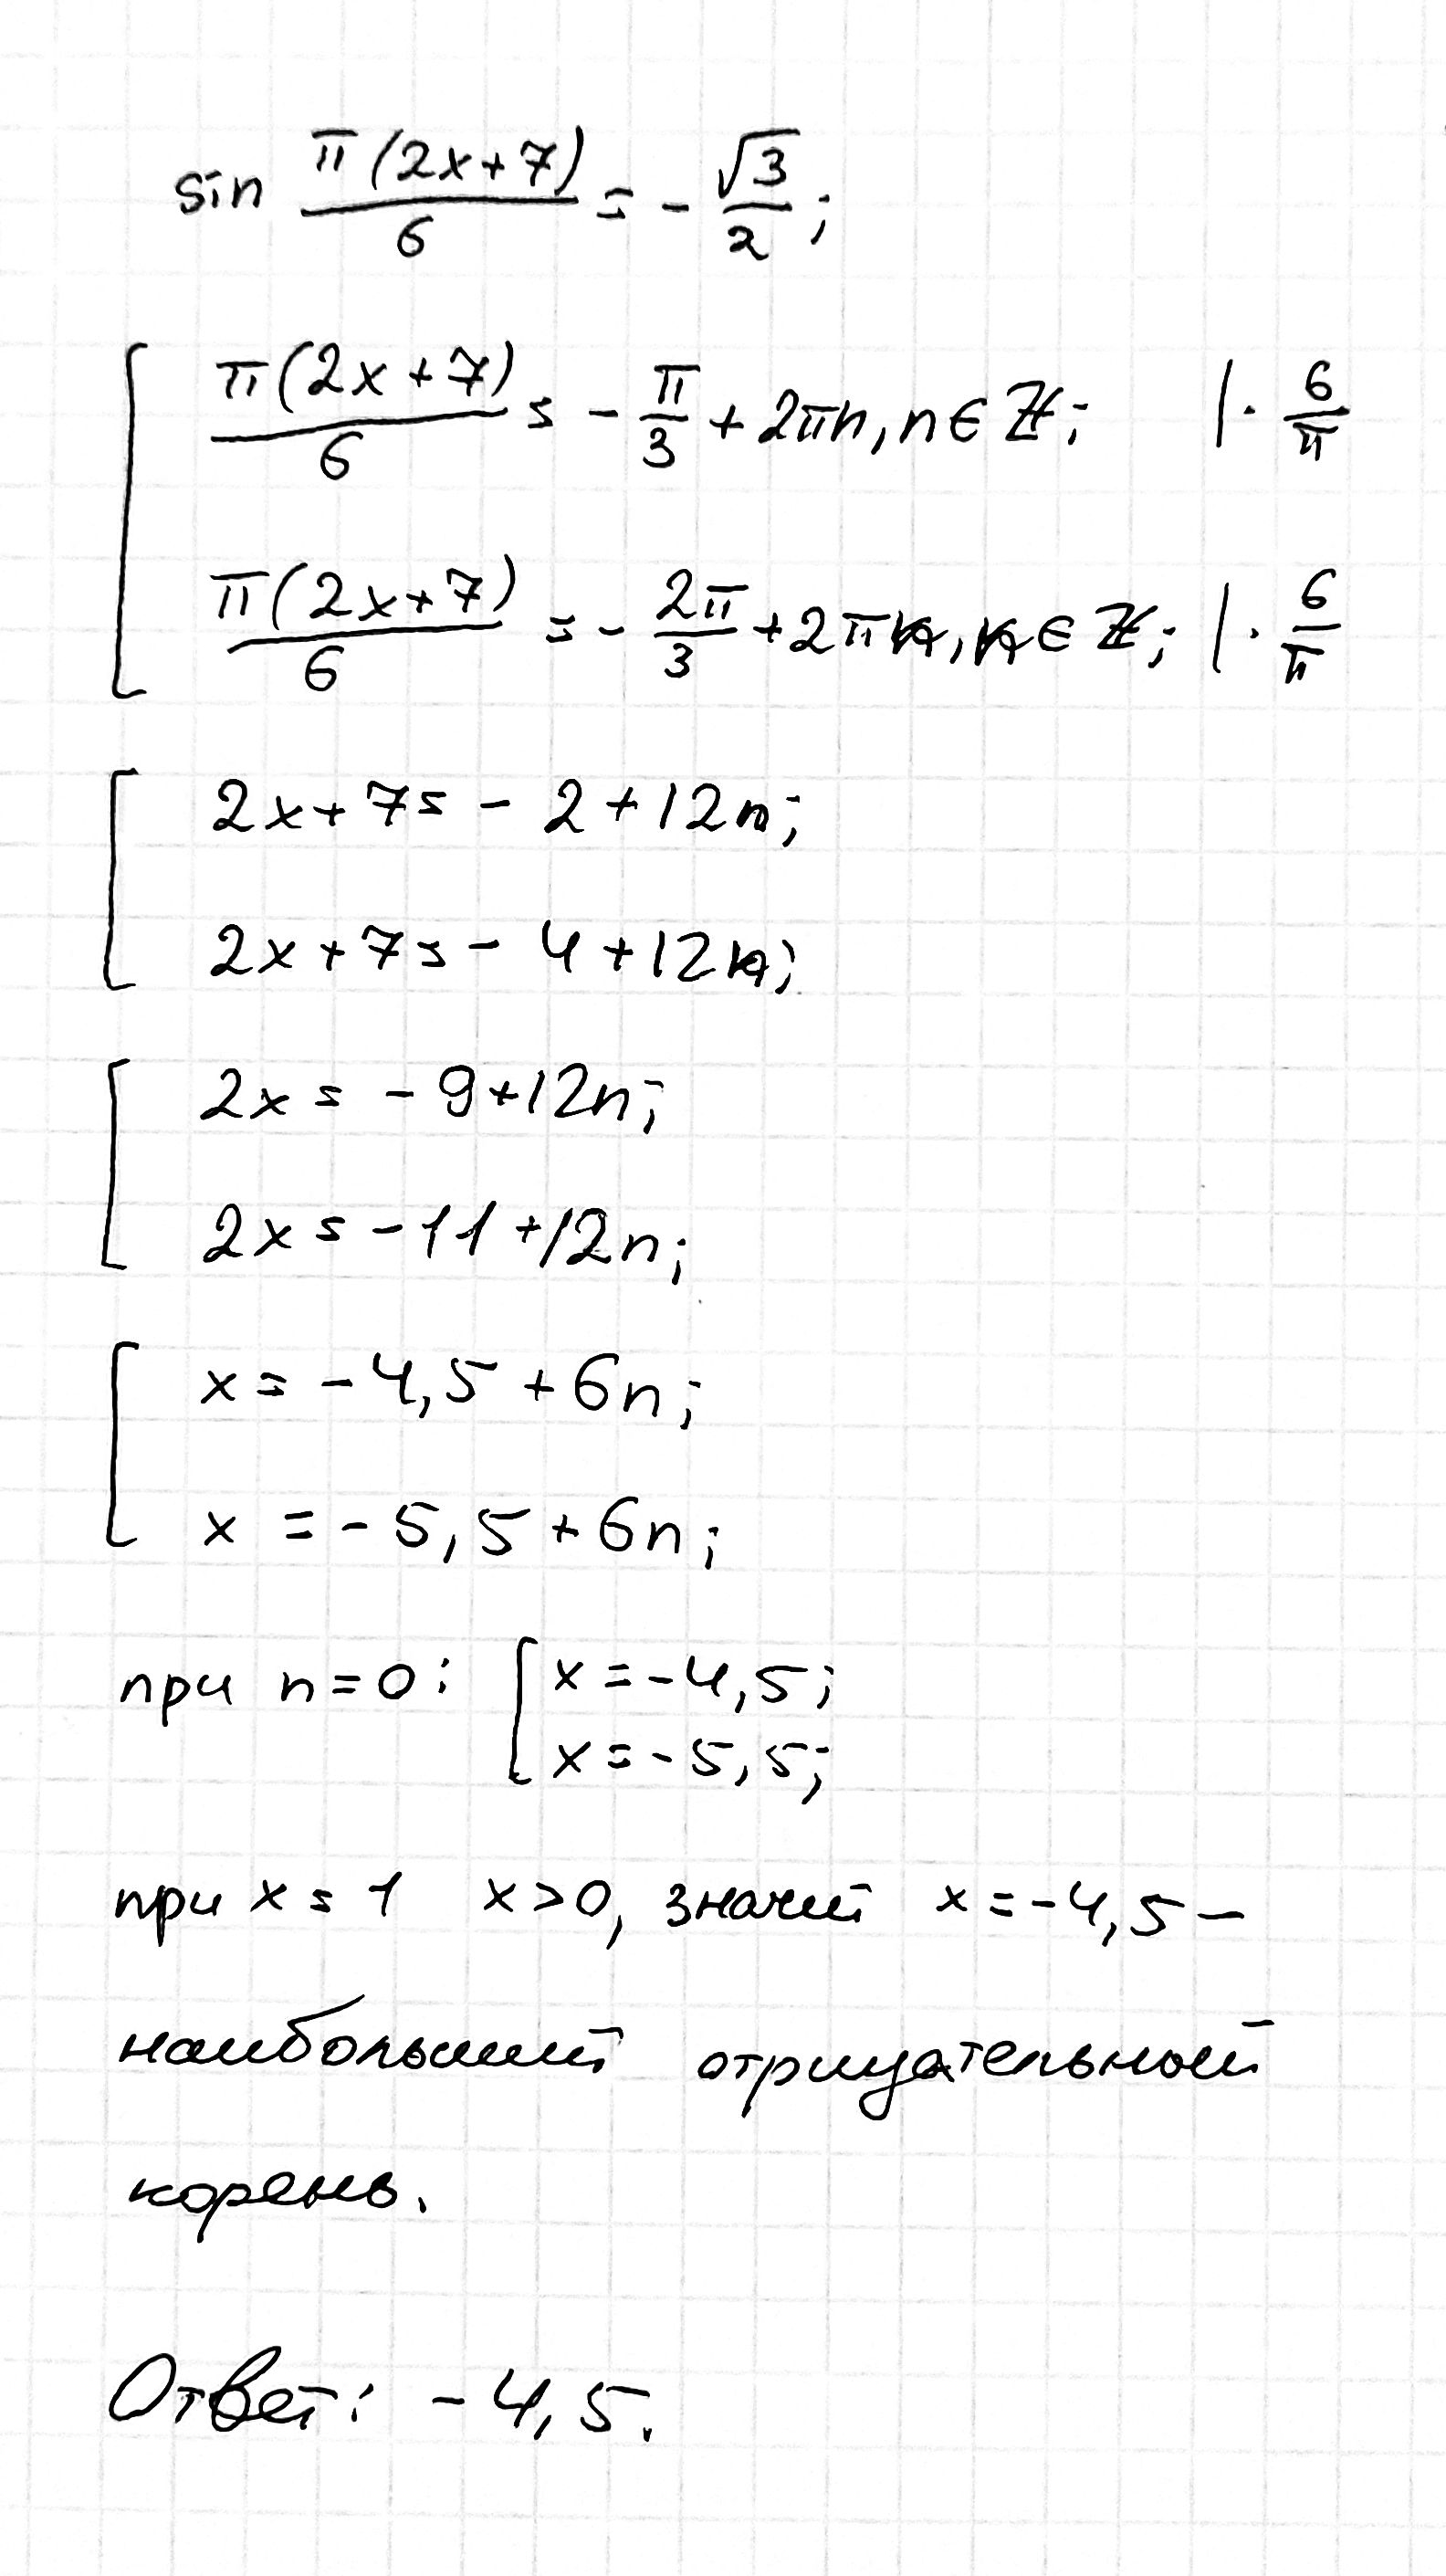 sin π(2x+7)/6 = - √3/2;
π(2x+7)/6 = - π/3 + 2πn, n ∈ ℤ; | · 6/π
π(2x+7)/6 = - 2π/3 + 2πn, n ∈ ℤ; | · 6/π
2x+7 = - 2 + 12n;
2x+7 = - 4 + 12n;
2x = - 9+12n;
2x = -11 +12n;
x = -4,5 + 6n;
x = -5,5 + 6n;
при n=0: [ x=-4,5;
x=-5,5;
при x = 1 x>0, значит x=-4,5 –
наибольший отрицательный
корень.
Ответ: -4,5.